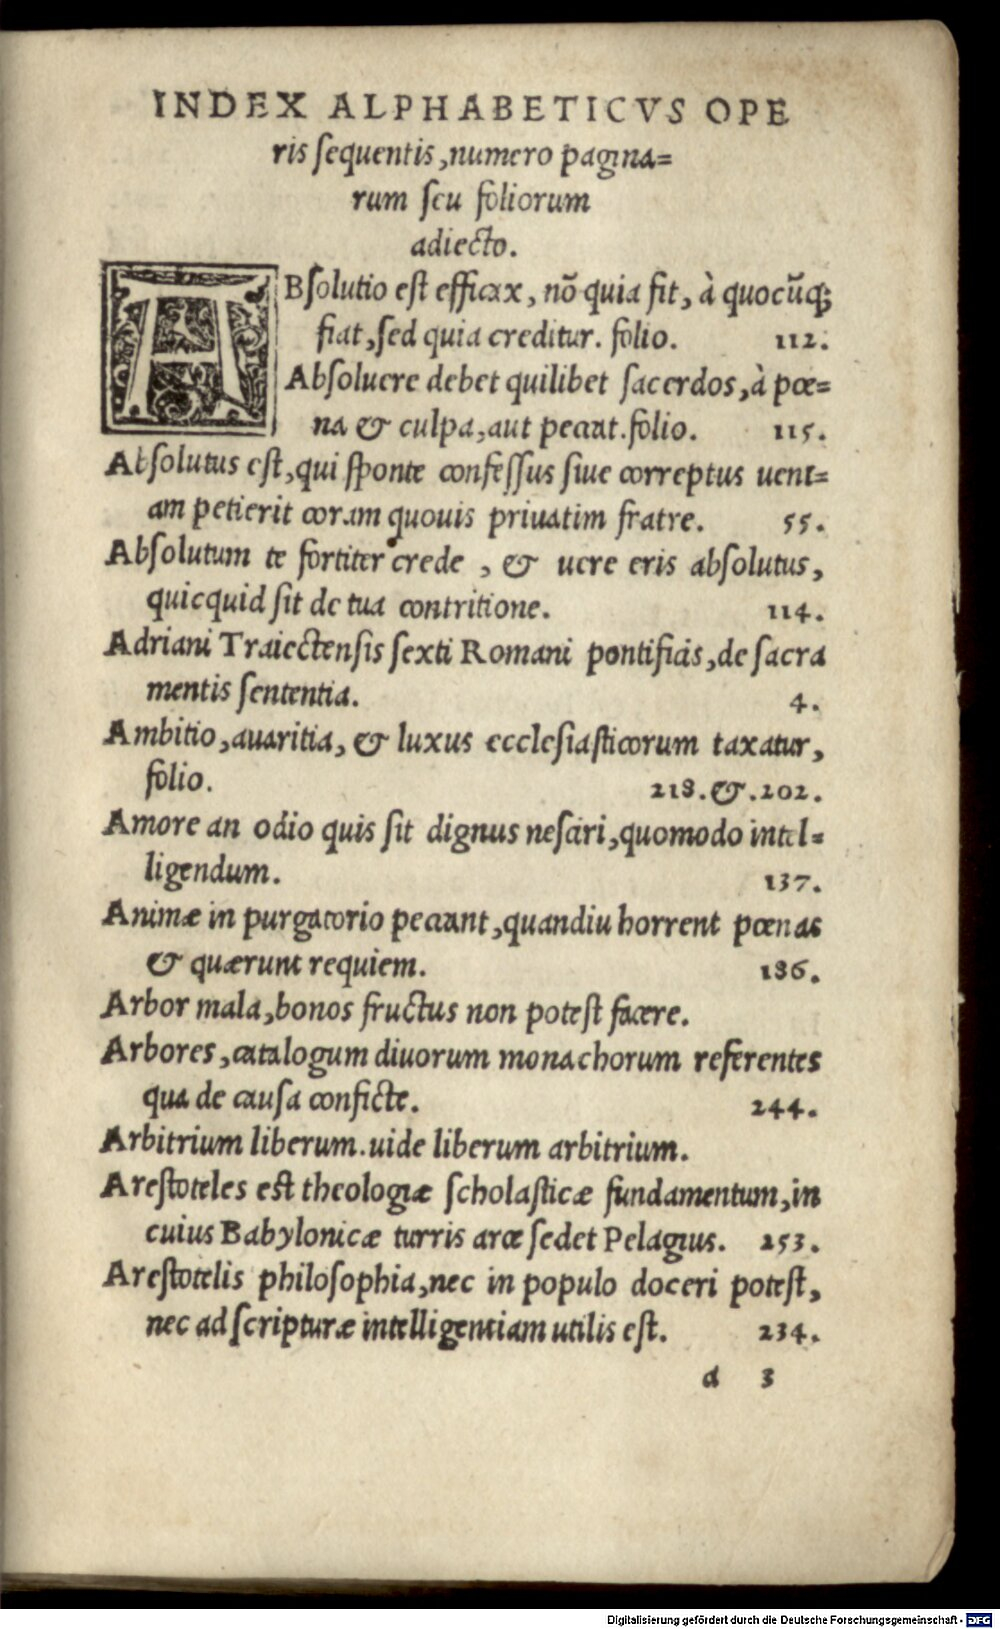 INDEX ALPHABETICVS OPE
ris ſequentis, numero pagina=
rum ſeu foliorum
adiecto.
ABſolutio eſt efficax, nõ quia fit, à quocũq;
fiat, ſed quia creditur. folio. 112.
Abſoluere debet quilibet ſacerdos, à pœ=
na & culpa, aut peccat. folio. 115.
Abſolutus eſt, qui ſponte confeſſus ſiue correptus ueni=
am petierit coram quouis priuatim fratre. 55.
Abſolutum te fortiter crede, & uere eris abſolutus,
quicquid ſit de tua contritione. 114.
Adriani Traiectenſis ſexti Romani pontificis, de ſacra
mentis ſententia. 4.
Ambitio, auaritia, & luxus eccleſiaſticorum taxatur,
folio. 218. &. 202.
Amore an odio quis ſit dignus neſciri, quomodo intel=
ligendum. 137.
Animæ in purgatorio peccant, quandiu horrent pœnas
& quærunt requiem. 186.
Arbor mala, bonos fructus non poteſt facere.
Arbores, catalogum diuorum monachorum referentes
qua de cauſa conficte. 244.
Arbitrium liberum. uide liberum arbitrium.
Areſtoteles eſt theologiæ ſcholaſticæ fundamentum, in
cuius Babylonicæ turris arce ſedet Pelagius. 253.
Areſtotelis philoſophia, nec in populo doceri poteſt,
nec ad ſcripturæ intelligentiam utilis eſt. 234.
d 3
Digitalisierung gefördert durch die Deutsche Forschungsgemeinschaft - DFG